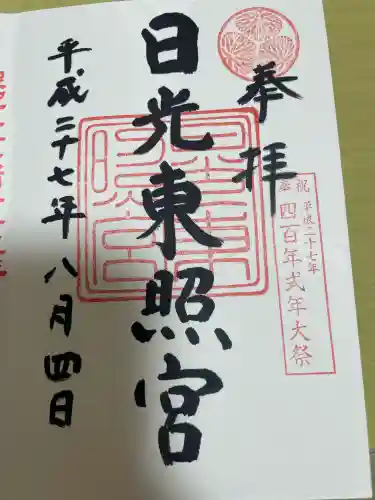 奉拝
奉祝
平成二十七年
四百年式年大祭
日光東照宮
平成二十七年八月四日